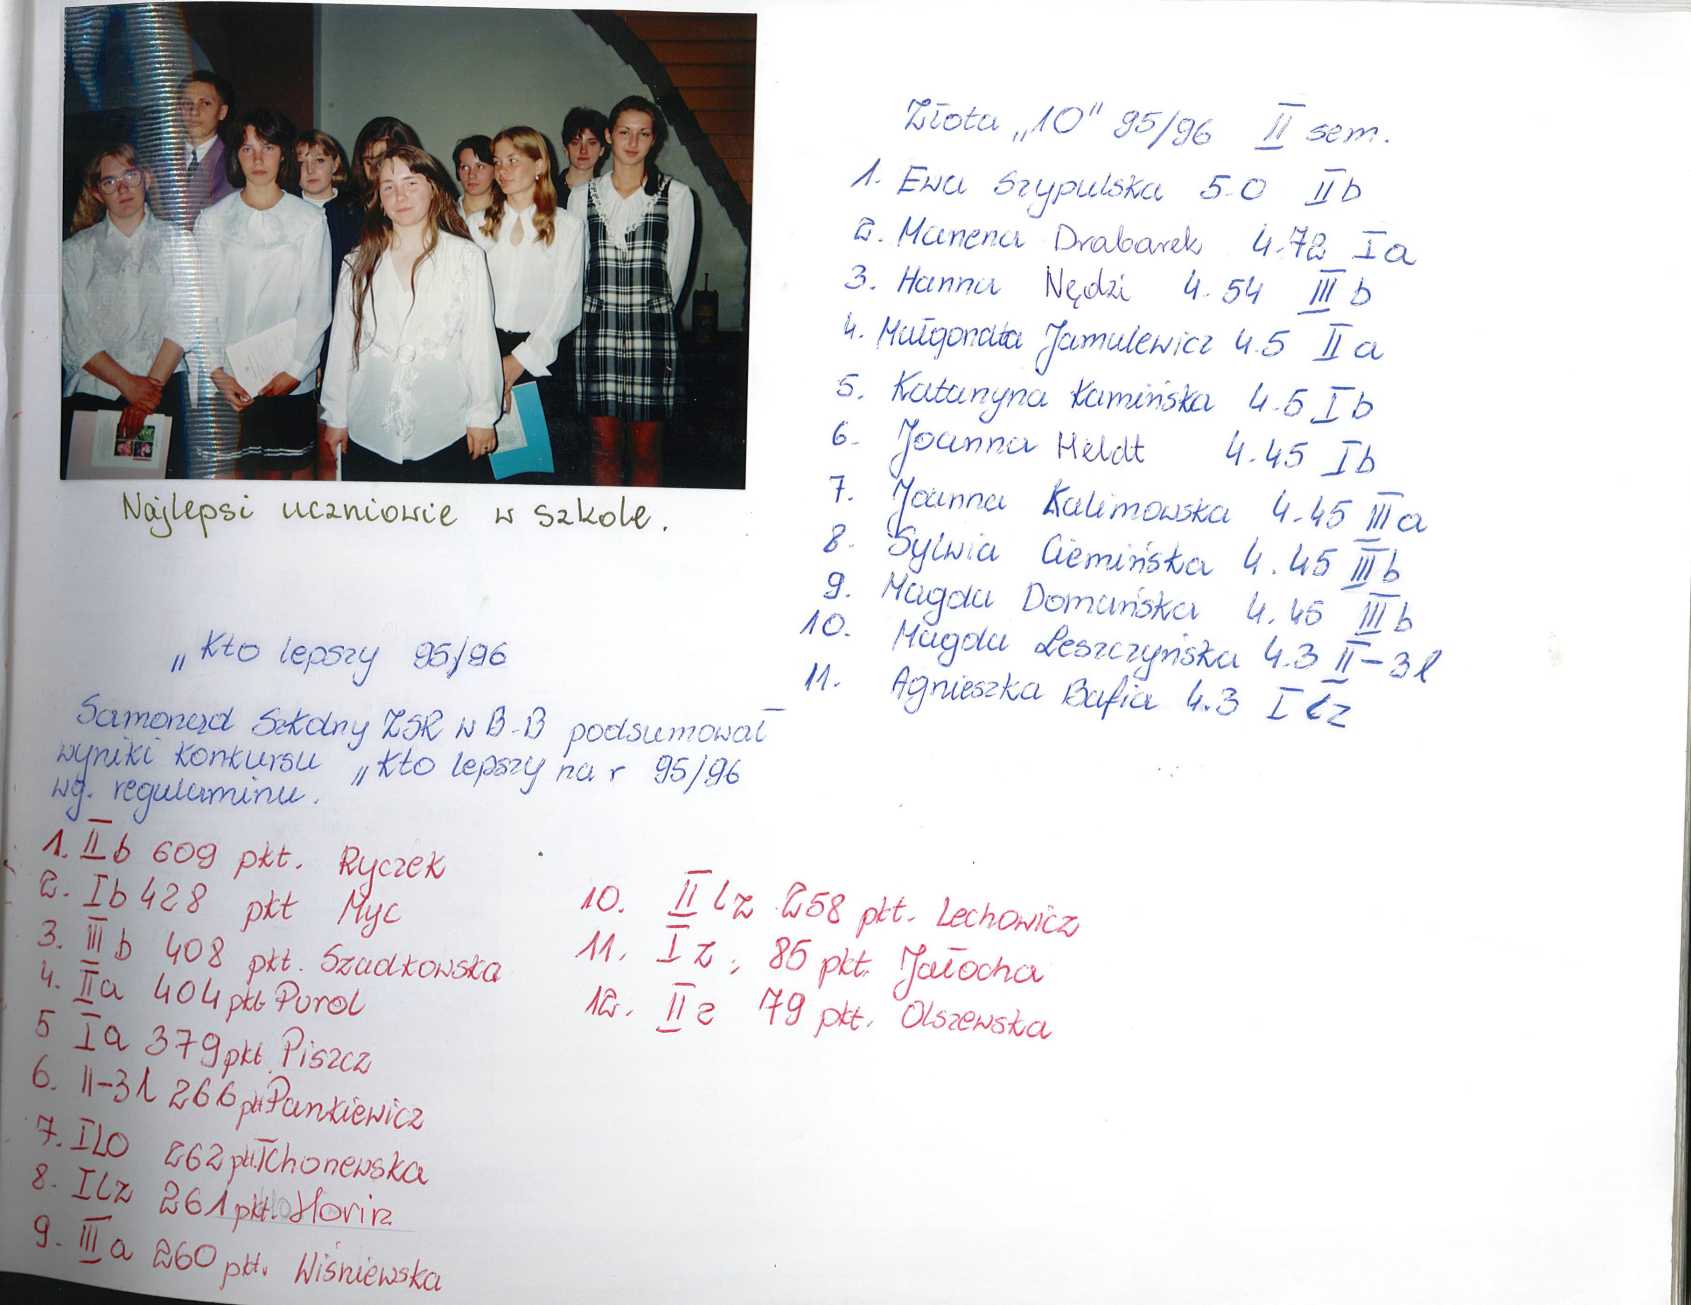 Najlepsi uczniowie w szkole.
„Kto lepszy 95/96
Samorząd Szkolny ZSR w B-B podsumował
wyniki konkursu „Kto lepszy na r 95/96
wg. regulaminu.
1. II b 609 pkt. Ryczek
2. I b 428 pkt Myc
3. III b 408 pkt. Szadkowska
4. II a 404 pkt Purol
5 I a 379 pkt. Piszcz
6. II-3l 266 pkt Pankiewicz
7. I LO 262 pkt. Tchorzewska
8. I Lz 261 pkt.
9. III a 260 pkt. Wiśniewska
10. II lz 258 pkt. Lechowicz
11. I z, 85 pkt. Jałocha
12. II z 79 pkt. Olszewska
Złota „10" 95/96 II sem.
1. Ewa Szypulska 5.0 II b
2. Marzena Drabarek 4.72 I a
3. Hanna Nędzi 4.54 III b
4. Małgorzata Jamulewicz 4.5 II a
5. Katarzyna Kamińska 4.5 I b
6. Joanna Heldt 4.45 I b
7. Joanna Kalinowska 4.45 III a
8. Sylwia Ciemińska 4.45 III b
9. Magda Domańska 4.45 III b
10. Magda Leszczyńska 4.3 II-3l
11. Agnieszka Bafia 4.3 I lz